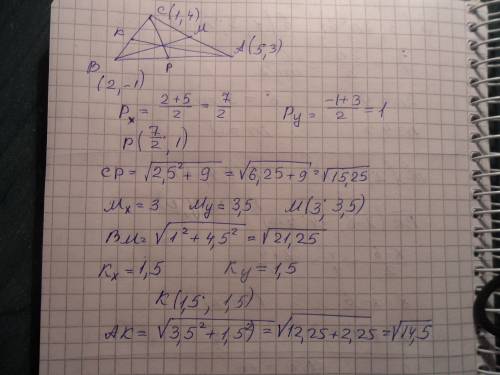 C(1,4)
K
M
A(5,3)
B
P
(2,-1)
Pₓ = (2+5)/2 = 7/2   Pᵧ = (-1+3)/2 = 1
P(7/2; 1)
CP = √(2,5² + 9) = √(6,25 + 9) = √15,25
Mₓ = 3   Mᵧ = 3,5   M(3; 3,5)
BM = √(1² + 4,5²) = √21,25
Kₓ = 1,5   Kᵧ = 1,5
K(1,5; 1,5)
AK = √(3,5² + 1,5²) = √(12,25 + 2,25) = √14,5